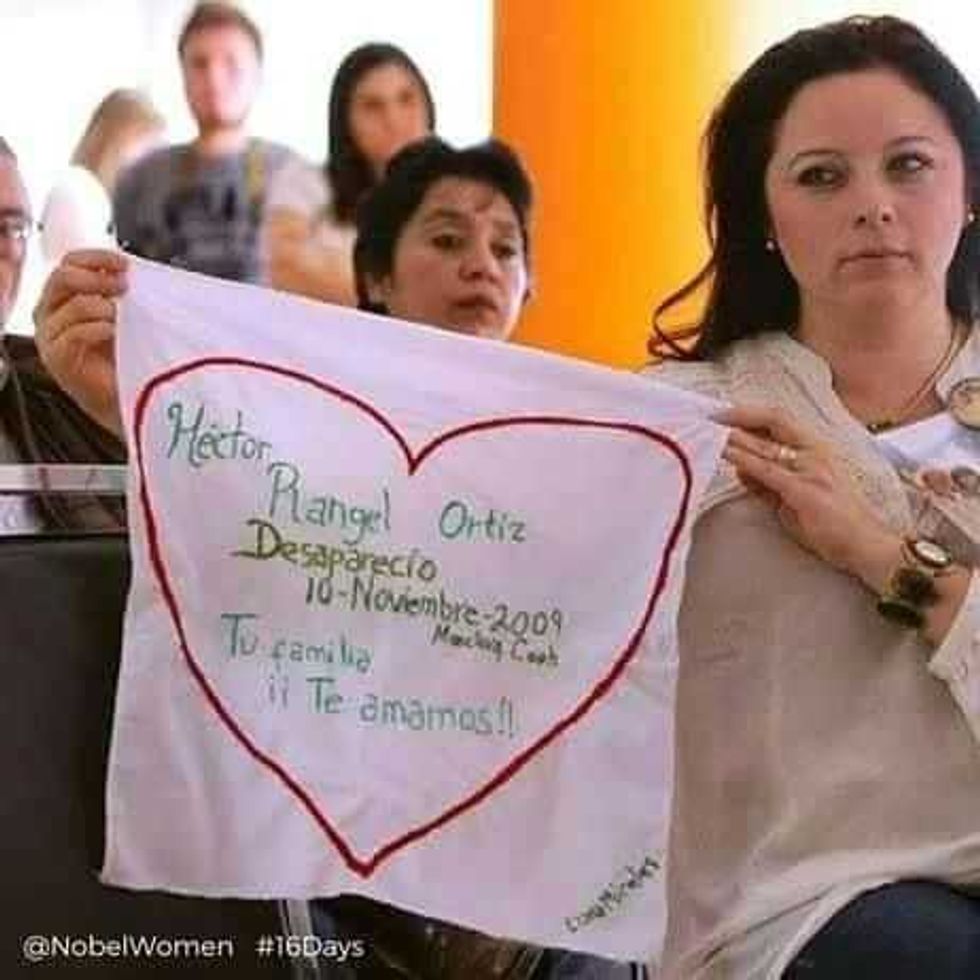 Héctor
Rangel Ortiz
Desaparecio
10-Noviembre-2009
Monclova Coah
Tu familia
¡¡ Te amamos!!
@NobelWomen #16Days